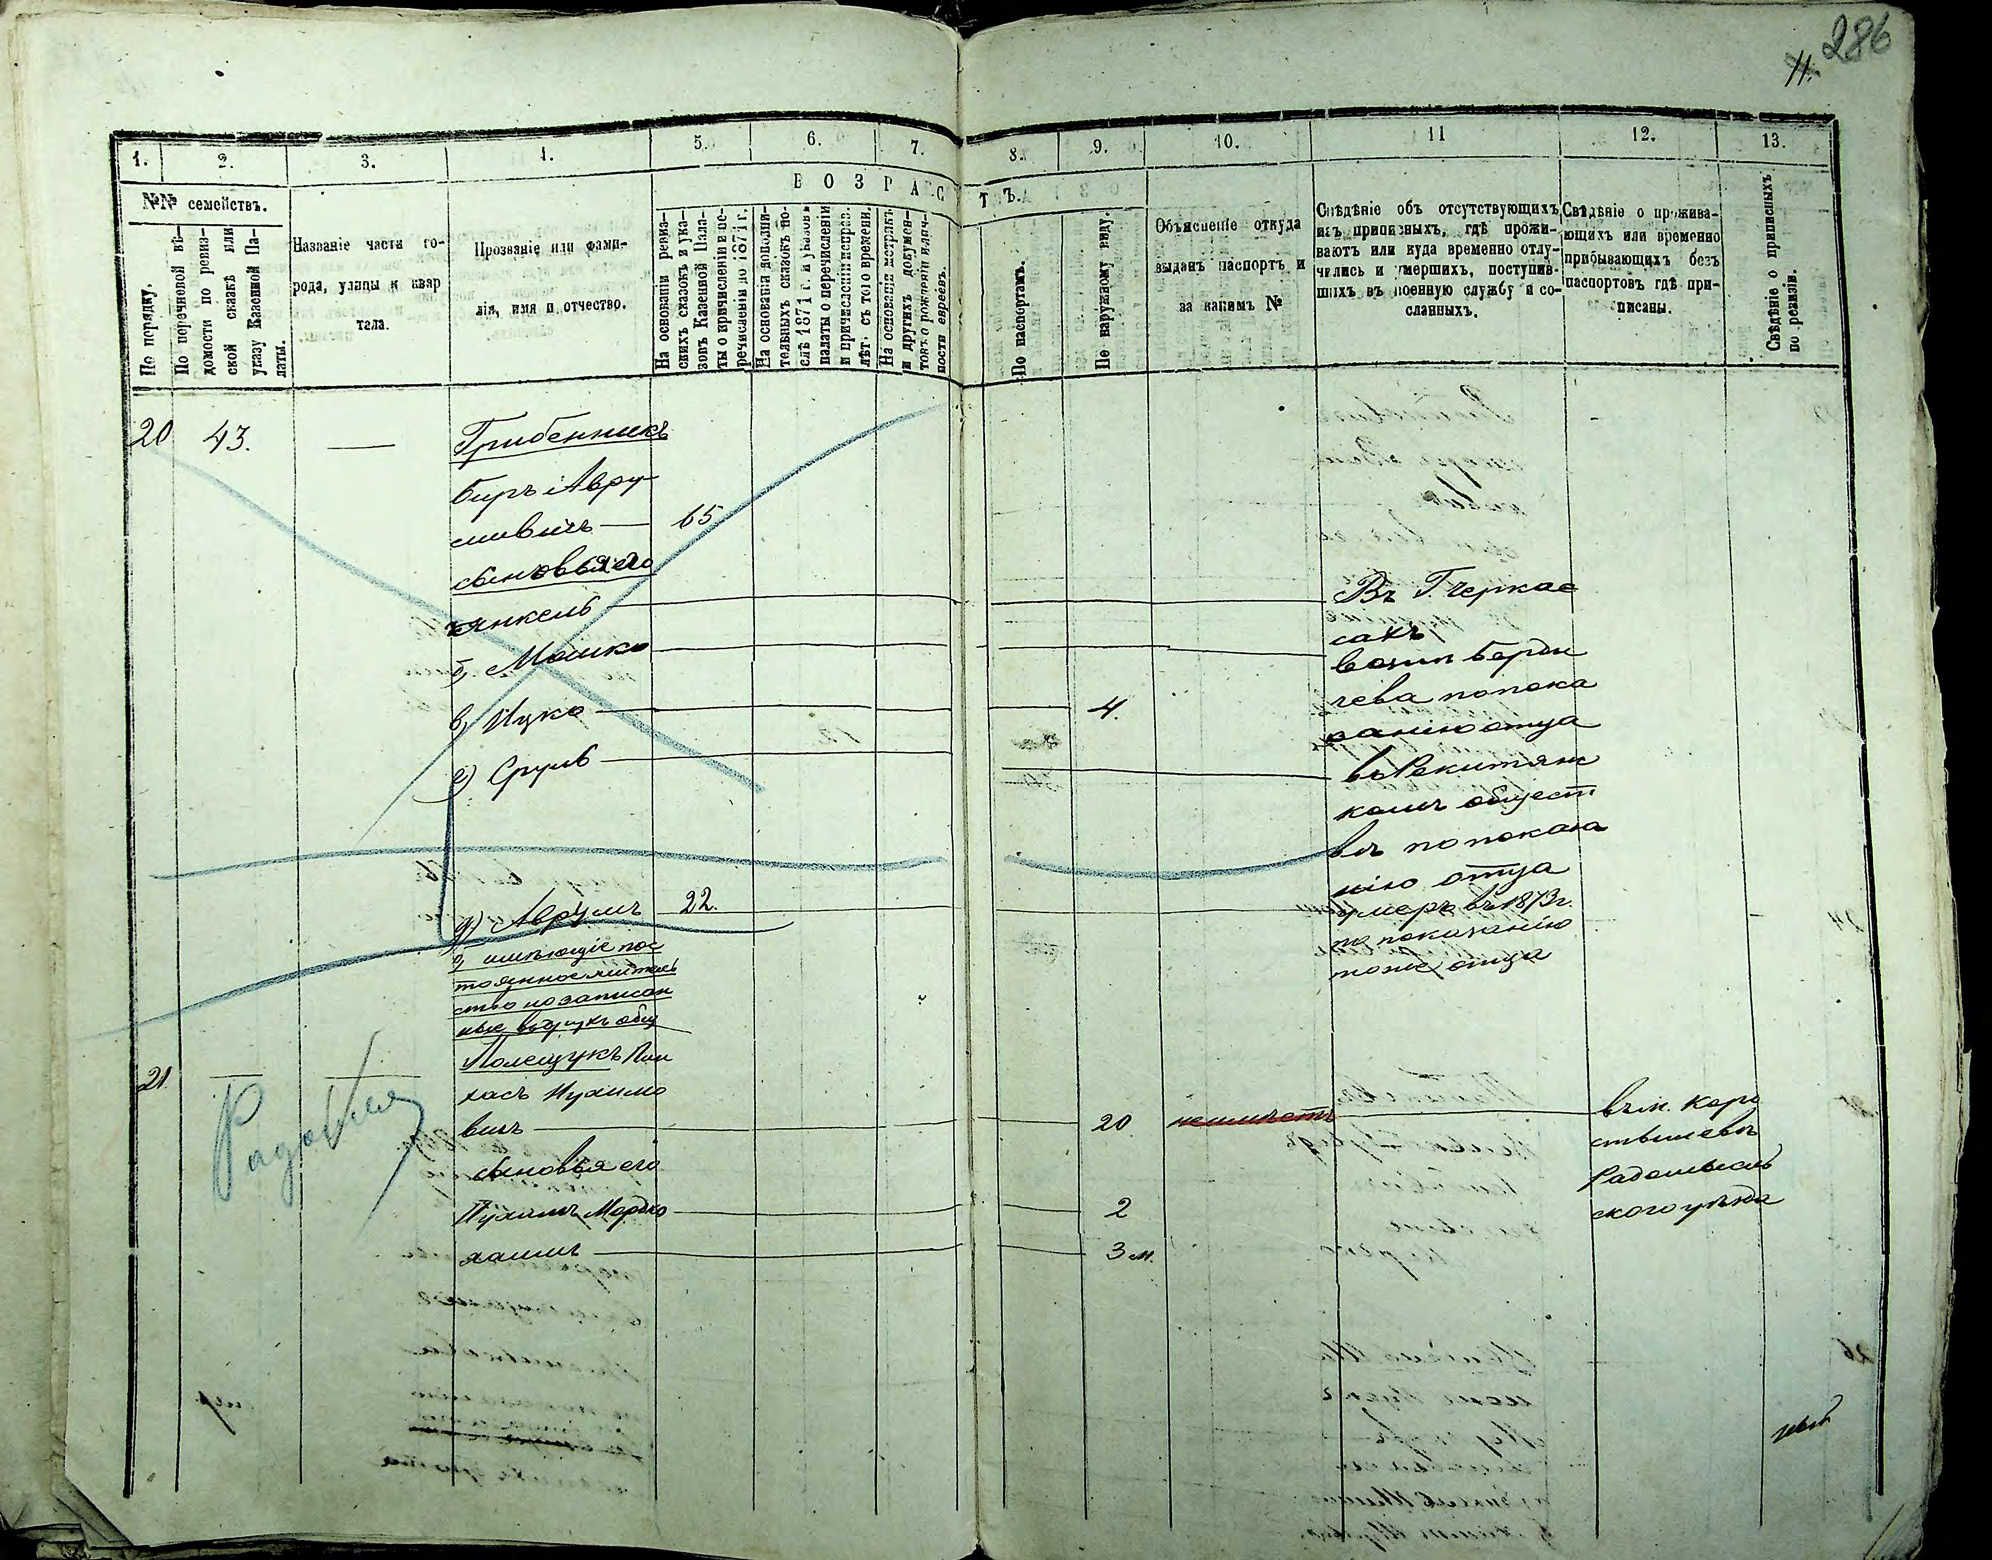 286
11.
1.
2.
3.
4.
5.
6.
7.
8.
9.
10.
11
12.
13.
№№ семействъ.
ВОЗРАСТЪ.
По порядку.
По перечневой вѣ-
домости по ревиз-
ской сказкѣ или
указу Казенной Па-
латы.
Названіе части го-
рода, улицы и квар
тала.
Прозваніе или фами-
лія, имя и отчество.
На основаніи ревиз-
скихъ сказокъ и ука-
зовъ Казенной Пала-
ты о причисленіи и пе-
речисленіи до 1871 г.
На основаніи дополни-
тельныхъ сказокъ по-
слѣ 1871 г. и указовъ
палаты о перечисленіи
и причисленіи исправ.
лѣт. съ того времени.
На основаніи метрикъ
и другихъ докумен-
товъ о рожденіи илич-
ности евреевъ.
По паспортамъ.
По наружному виду.
Объясненіе откуда
выданъ паспортъ и
за какимъ №
Свѣдѣніе объ отсутствующихъ
изъ приписныхъ, гдѣ прожи-
ваютъ или куда временно отлу-
чились и умершихъ, поступив-
шихъ въ военную службу и со-
сланныхъ.
Свѣдѣніе о прожива-
ющихъ или временно
прибывающихъ безъ
паспортовъ гдѣ при-
писаны.
Свѣдѣніе о приписныхъ
по ревизіи.
20
43.
Грибенникъ
Беръ Авру
мовичъ
65
сыновья его
Янкель
Въ Г. Черкас
сахъ
б) Мошко
возлѣ Берди
чева по пока
занію отца
в) Ицко
4.
г) Сруль
въ Рокитян
комъ общест
вѣ по показа
нію отца
д) Аврумъ
22.
умеръ въ 1873 г.
по показанію
тоже отца
имѣющіе пос
тоянное жительс
ство но записан
ные въ другихъ общ
21.
Полещукъ Пин
хасъ Нухимо
вичъ
20
неимѣетъ
въ м. Коро
стышевѣ
Радомысль
ского уѣзда
сыновья его
Нухимъ Мордко
2
хаимъ
3 м.